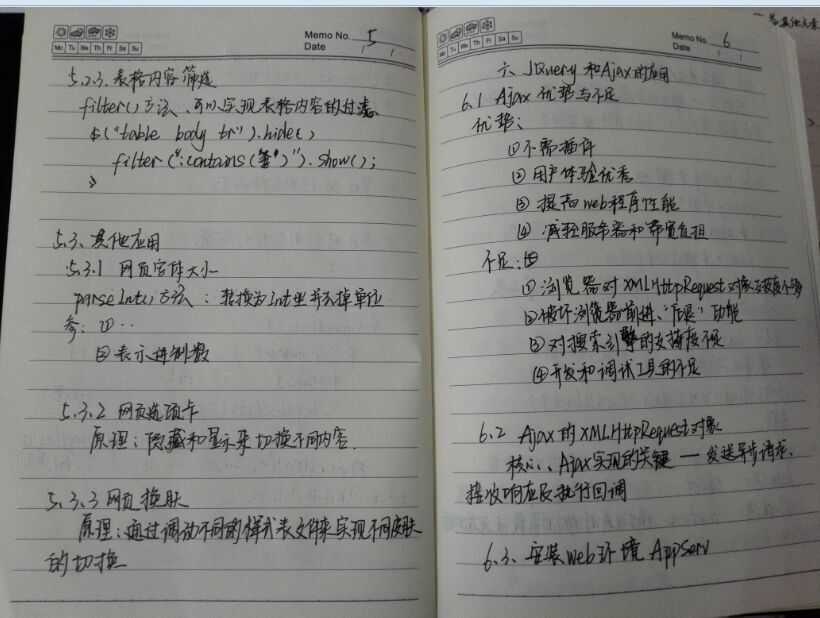 Memo No. 5
Mo Tu We Th Fr Sa Su
Date
5.2.3. 表格内容筛选
filter()方法、可以实现表格内容的过滤
$("table body tr").hide()
filter(":contains(
)").show();
5.3. 其他应用
5.3.1 网页字体大小
parseInt()方法：转换为Int型并去掉单位
参：①..
②表示进制数
5.3.2 网页选项卡
原理：隐藏和显示来切换不同内容.
5.3.3 网页换肤
原理：通过调动不同的样式表文件来实现不同皮肤
的切换
Memo No. 6
Mo Tu We Th Fr Sa Su
Date
六、JQuery 和Ajax的应用
6.1 Ajax 优势与不足
优势：
①不需插件
②用户体验优秀
③提高web程序性能
④减轻服务器和带宽负担
不足：
①浏览器对XMLHttpRequest对象支持度不够
②破坏浏览器前进、“后退”功能
③对搜索引擎的支持度不足
④开发和调试工具的不足
6.2 Ajax 的XMLHttpRequest对象
核心、Ajax实现的关键 — 发送异步请求、
接收响应及执行回调
6.3. 安装web环境 AppServ